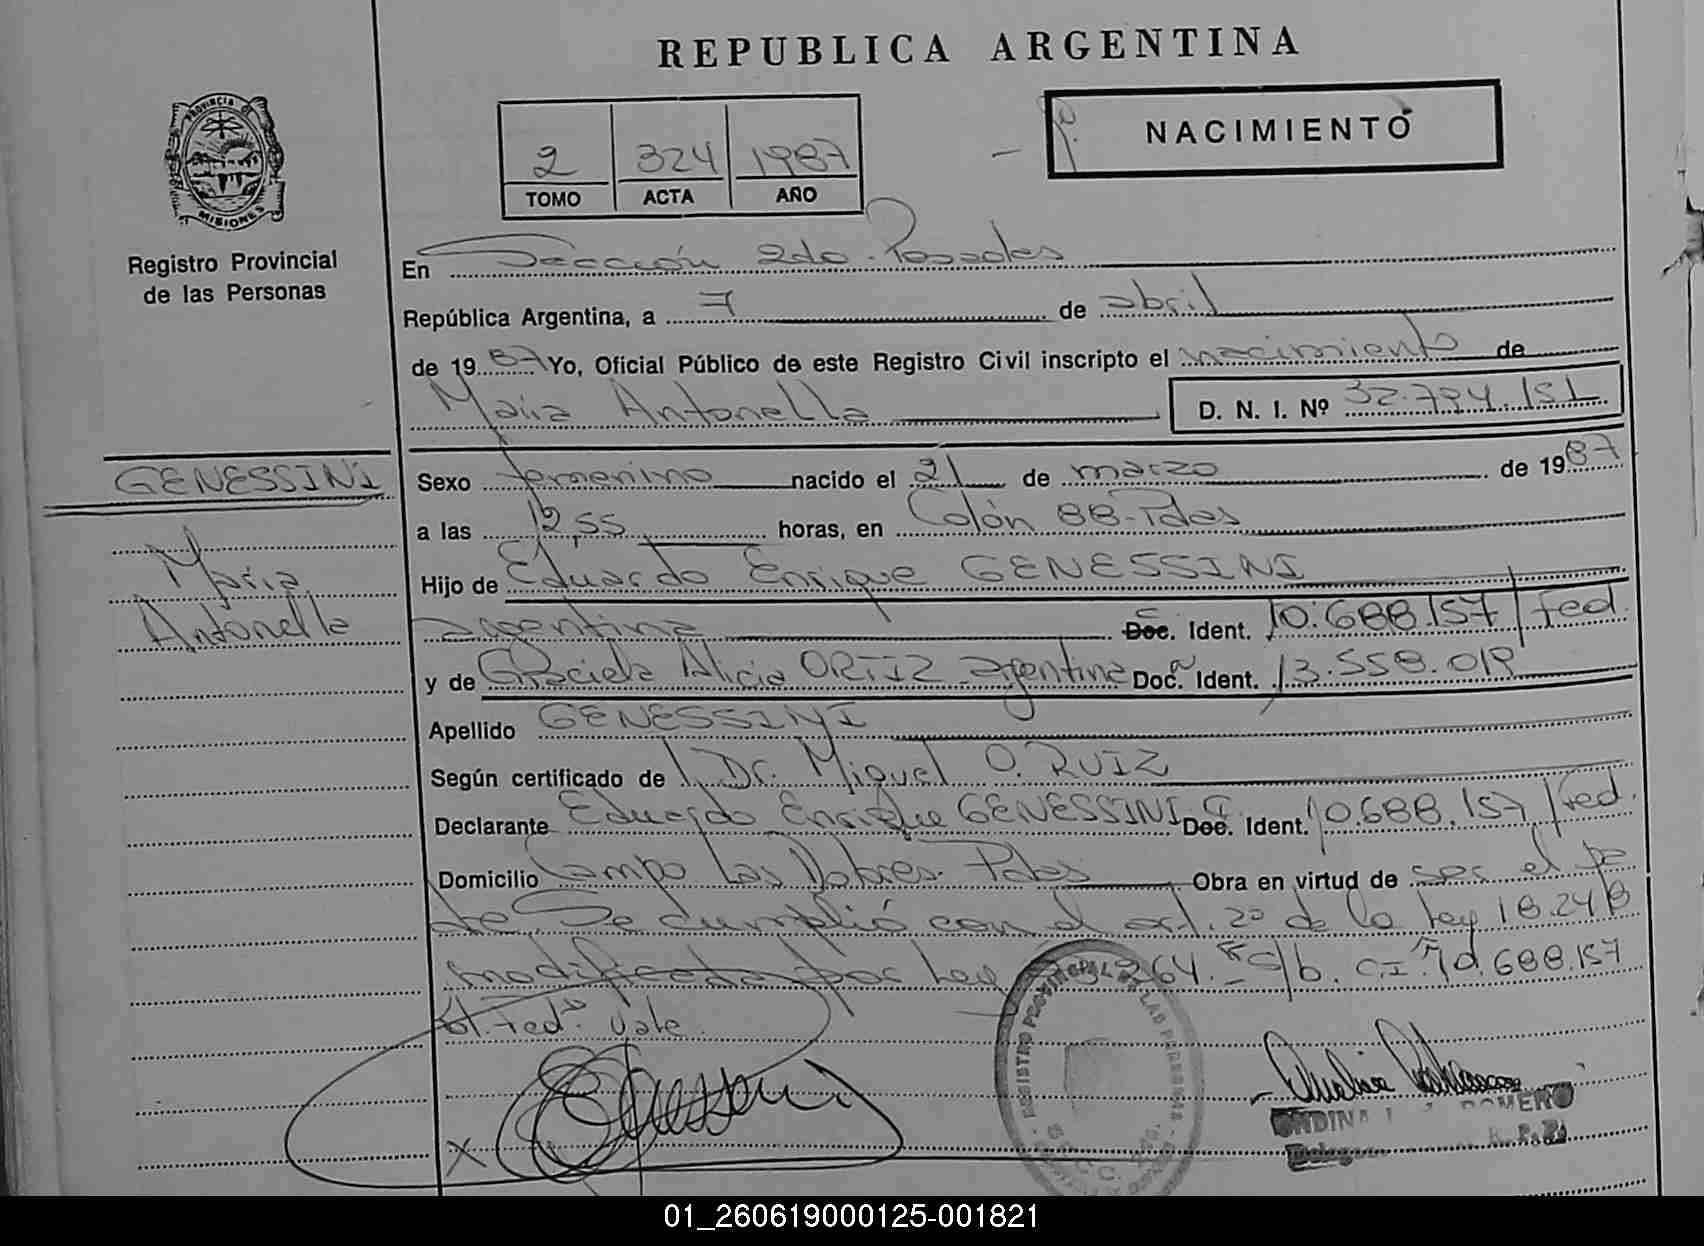 REPUBLICA ARGENTINA
PROVINCIA
MISIONES
Registro Provincial
de las Personas
2 324 1987
TOMO ACTA AÑO
NACIMIENTO
En Sección 2da. Posadas
República Argentina, a 7 de abril
de 1987 Yo, Oficial Público de este Registro Civil inscripto el nacimiento de
María Antonella D. N. I. Nº 32.794.151
GENESSINI
Sexo femenino nacido el 21 de marzo de 1987
a las 12,55 horas, en Colón 88-Pdas
María
Antonella
Hijo de Eduardo Enrique GENESSINI
argentina Doc. Ident. 10.688.157/Fed.
y de Graciela Alicia ORTIZ argentina Doc. Ident. 13.558.019
Apellido GENESSINI
Según certificado de Dr. Miguel O. RUIZ
Declarante Eduardo Enrique GENESSINI Doc. Ident. 10.688.157/Fed.
Domicilio Campo Las Pdas Obra en virtud de ser el pa
dre. Se cumplió con el art. 2º de la Ley 18.248
modificada por Ley 264. s/b. C.I. 10.688.157
Fed. Vale
REGISTRO PROVINCIAL DE LAS PERSONAS
X
ONDINA ROMERO
01_260619000125-001821